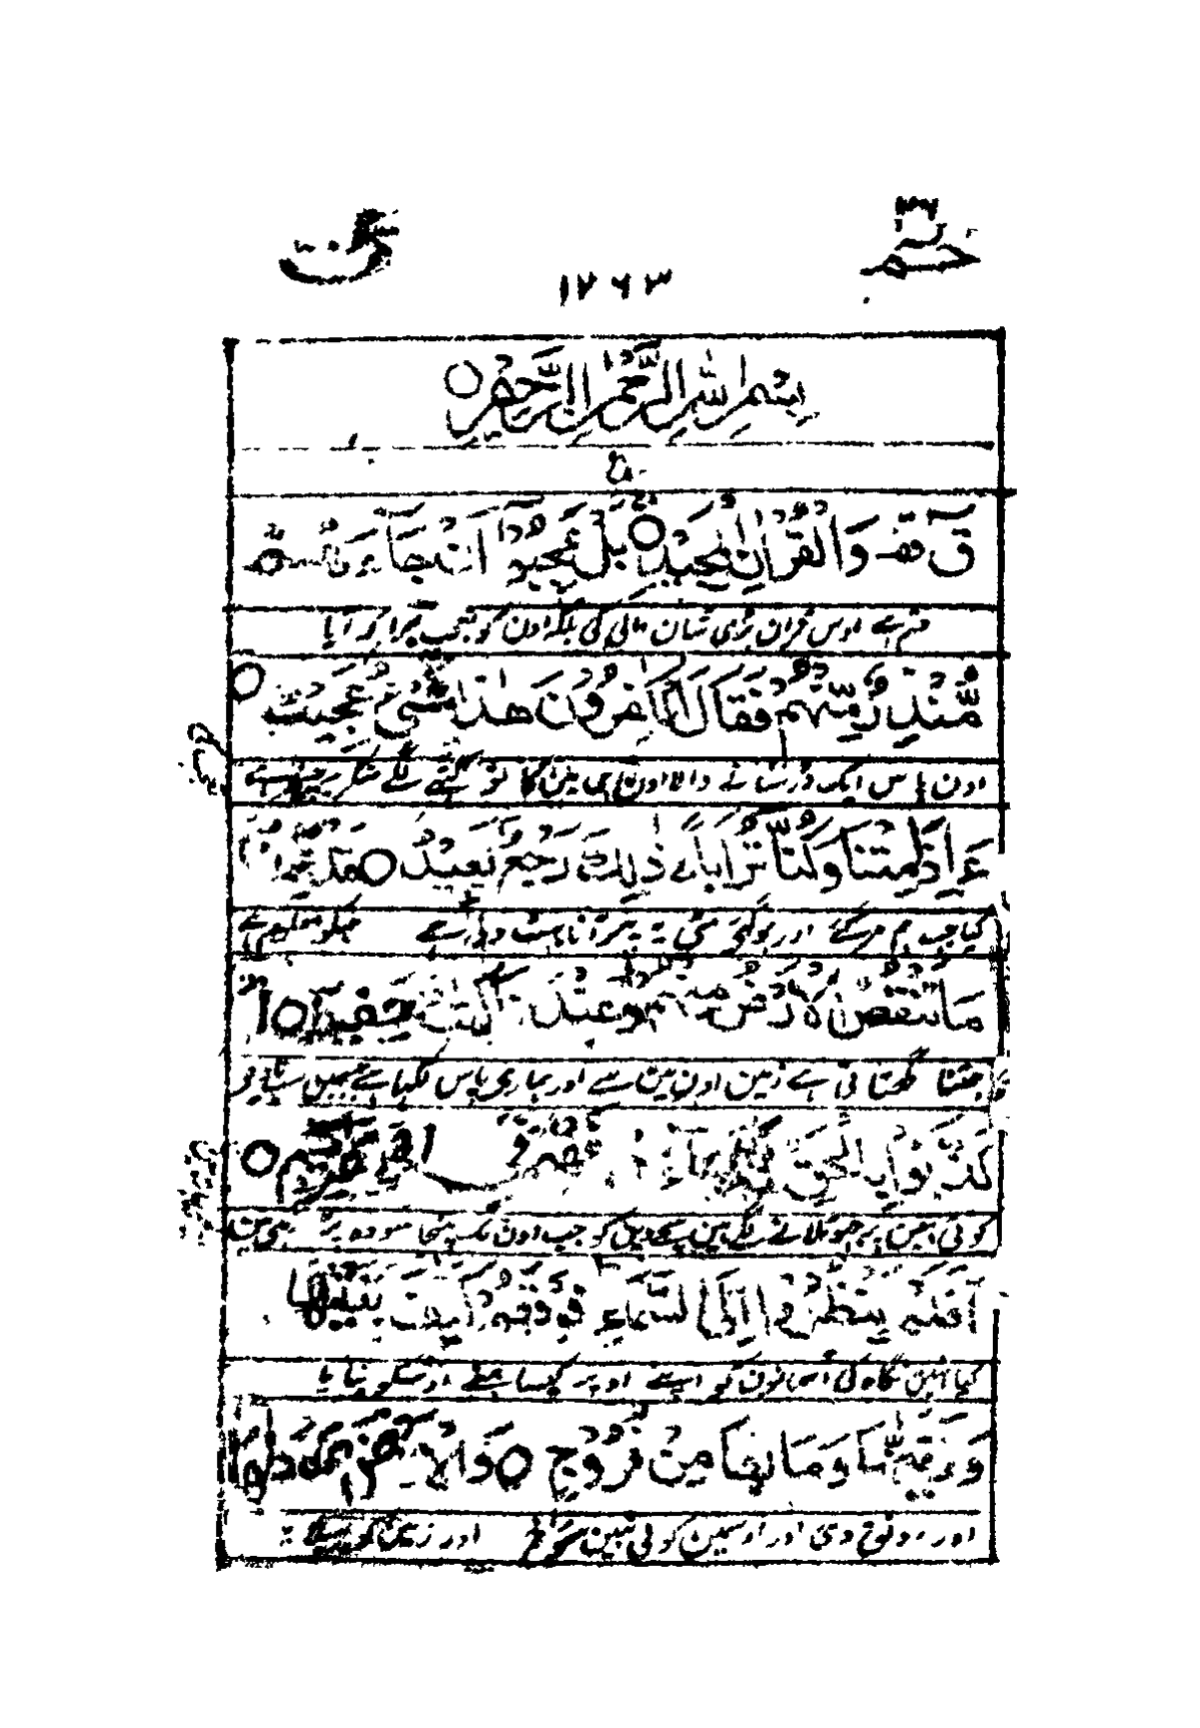 حٰمٓ ٢٦
١٢٦٣
قٓ
بِسْمِ اللّٰهِ الرَّحْمٰنِ الرَّحِيْمِ ○
قٓ قف وَالْقُرْاٰنِ الْمَجِيْدِ ○ بَلْ عَجِبُوْٓا اَنْ جَآءَهُمْ
قسم ہے اوس قران بڑی شان والی کی بلکہ اون کو تعجب ہوا کہ آیا
مُّنْذِرٌ مِّنْهُمْ فَقَالَ الْكٰفِرُوْنَ هٰذَا شَىْءٌ عَجِيْبٌ ○
اون پاس ایک ڈر سنانے والا اون ہی مین کا تو کہنے لگے منکر یہ
ءَاِذَا مِتْنَا وَكُنَّا تُرَابًا ۚ ذٰلِكَ رَجْعٌۢ بَعِيْدٌ ○ قَدْ عَلِمْنَا
کیا جب ہم مرگئے اور ہوگئے مٹی یہ پھر آنا بہت دور ہے ہمکو معلوم ہے
مَا تَنْقُصُ الْاَرْضُ مِنْهُمْ ۚ وَعِنْدَنَا كِتٰبٌ حَفِيْظٌ ○ بَلْ
جتنا گھٹاتی ہے زمین اون مین سے اور ہماری پاس لکھا ہے جسمیں سب
كَذَّبُوْا بِالْحَقِّ لَمَّا جَآءَهُمْ فَهُمْ فِىْٓ اَمْرٍ مَّرِيْجٍ ○
کوئی نہین پر جھٹلانے لگے ہین سچے دین کو جب اون تک پہنچا سو وہ پڑ رہی ہین
اَفَلَمْ يَنْظُرُوْٓا اِلَى السَّمَآءِ فَوْقَهُمْ كَيْفَ بَنَيْنٰهَا
کیا نہین نگاہ کی آسمانون کو اپنے اوپر کیسا ہمنے اوسکو بنایا
وَزَيَّنّٰهَا وَمَا لَهَا مِنْ فُرُوْجٍ ○ وَالْاَرْضَ مَدَدْنٰهَا
اور رونق دی اور اوسمین کوئی نہین سوراخ اور زمین کو